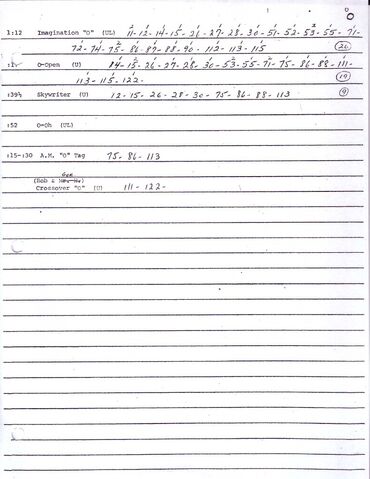 O
1:12 Imagination "O" (UL) 11-12-14-15-26-27-28-30-51-52-53-55-71-
72-74-75-86-87-88-90-112-113-115
O-Open (U) 84-15-26-27-28-30-53-55-71-75-86-88-111-
113-115-122- (19)
:39½ Skywriter (U) 12-15-26-28-30-75-86-88-113 (9)
:52 O=Oh (UL)
:15-:30 A.M. "O" Tag 75-86-113
(Bob &
Crossover "O" (U) 111-122-